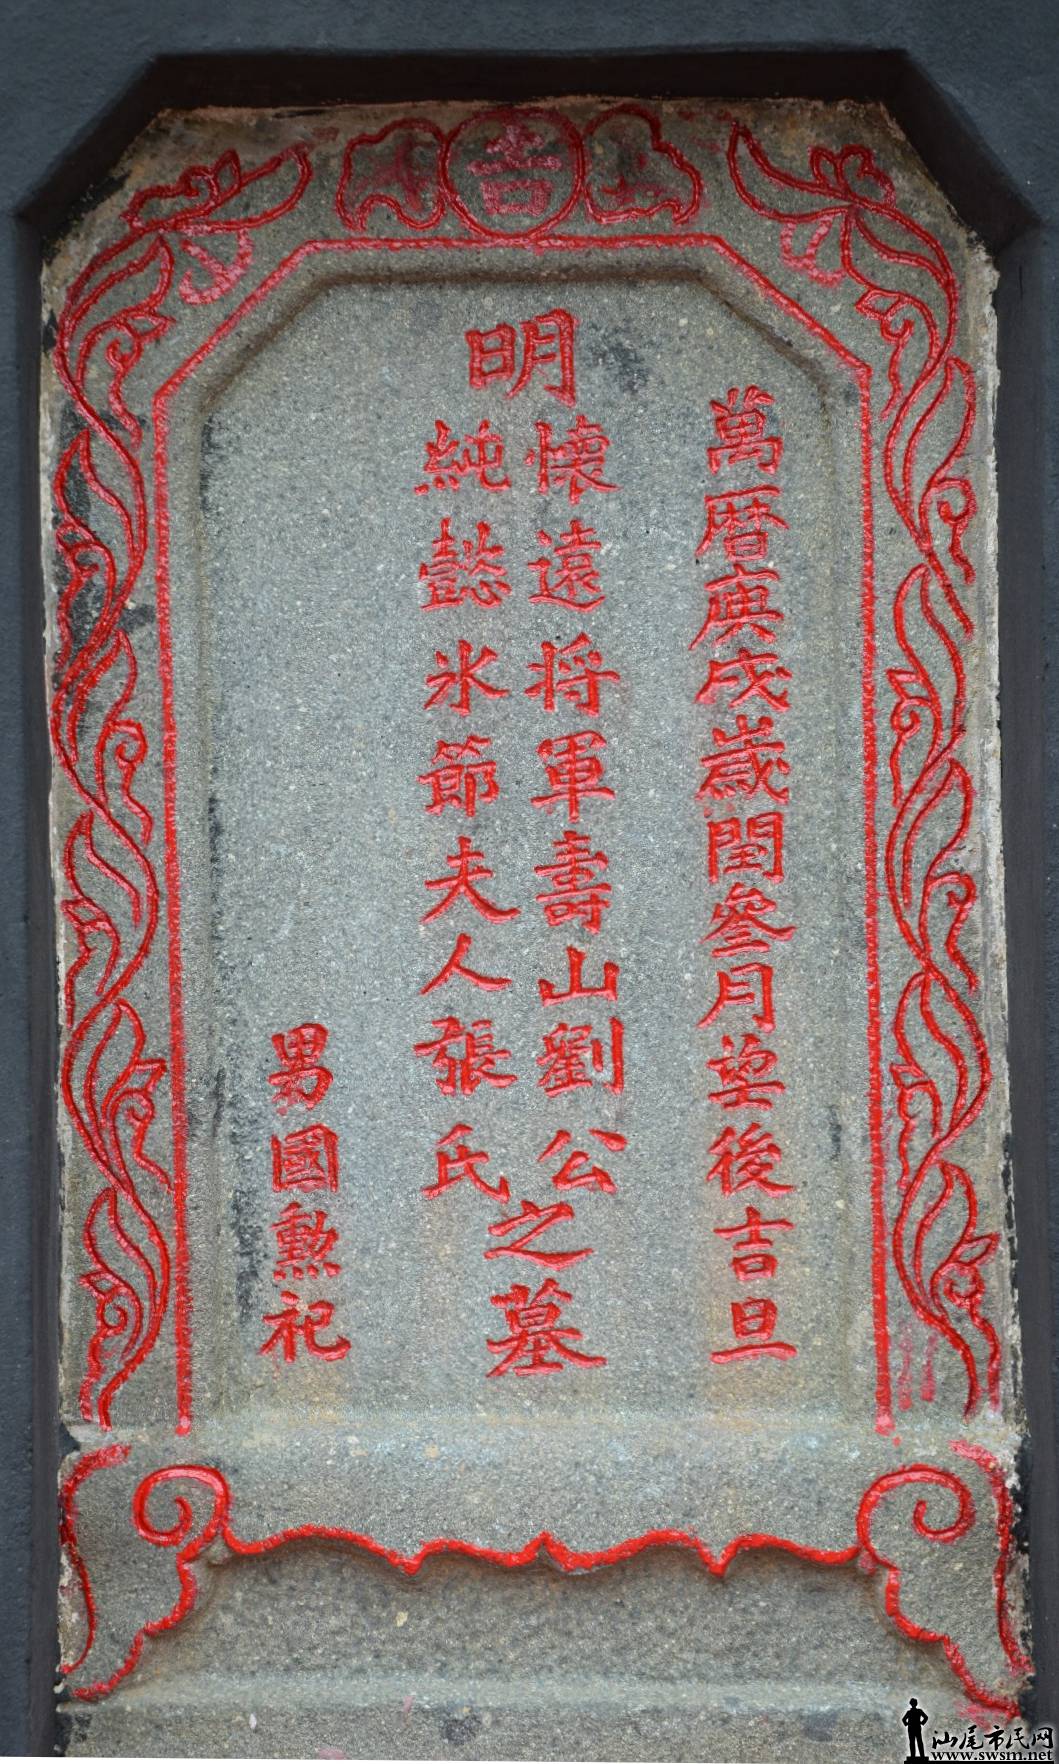 吉
萬曆庚戌歲閏叄月望後吉旦
明
懷遠将軍壽山劉公
純懿氷節夫人張氏
之墓
男國勲祀
汕尾市民网
www.swsm.net